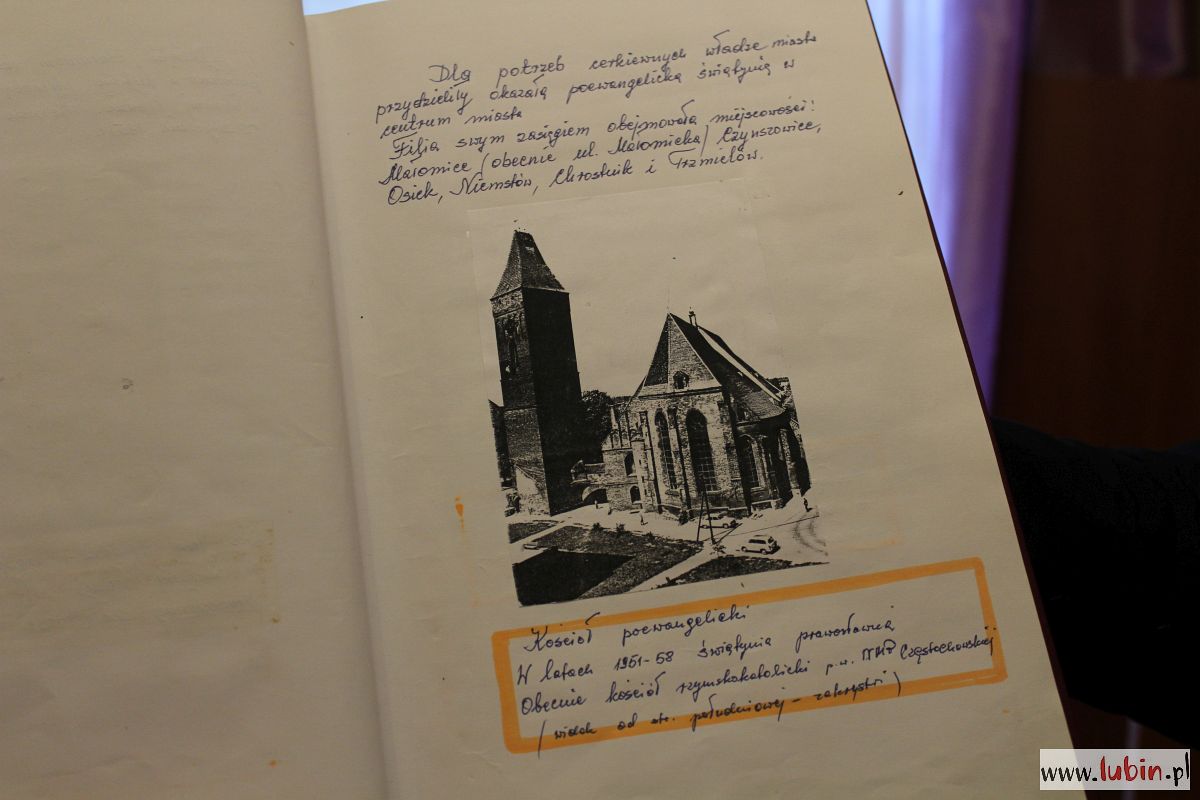 Dla potrzeb cerkiewnych władze miasta
przydzieliły okazałą poewangelicką świątynią w
centrum miasta
Filia swym zasięgiem obejmowała miejscowości:
Małomice (obecnie ul. Małomicka) Czynszowice,
Osiek, Niemstów, Chrostnik i Trzmielów.
Kościół poewangelicki
W latach 1951-58 świątynia prawosławna
Obecnie kościół rzymskokatolicki p.w. NMP Częstochowskiej
(widok od str. południowej - zakrystii)
www.lubin.pl